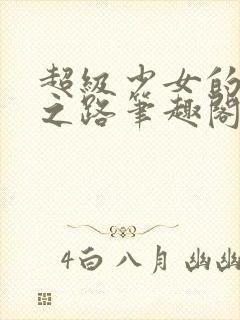 超級少女的
之路筆趣閣
4白八月幽幽